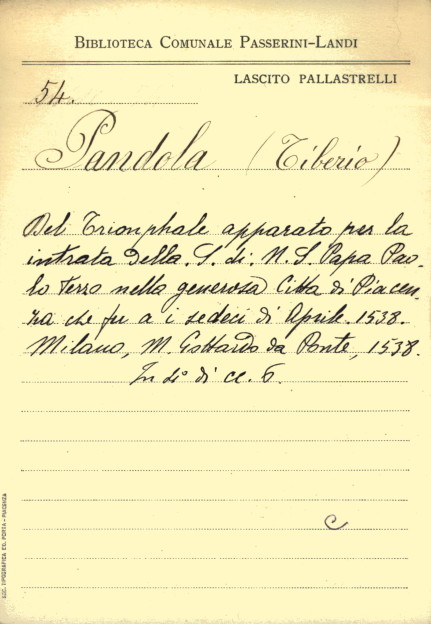 BIBLIOTECA COMUNALE PASSERINI-LANDI
LASCITO PALLASTRELLI
54.
Pandola (Tiberio)
Del Trionphale apparato per la
intrata della. S. di. N. S. Papa Pao-
lo terzo nella generosa Citta di Piacen-
za che fu a i sedeci di Aprile. 1538.
Milano, M. Gottardo da Ponte, 1538.
In 4° di cc. 6.
C